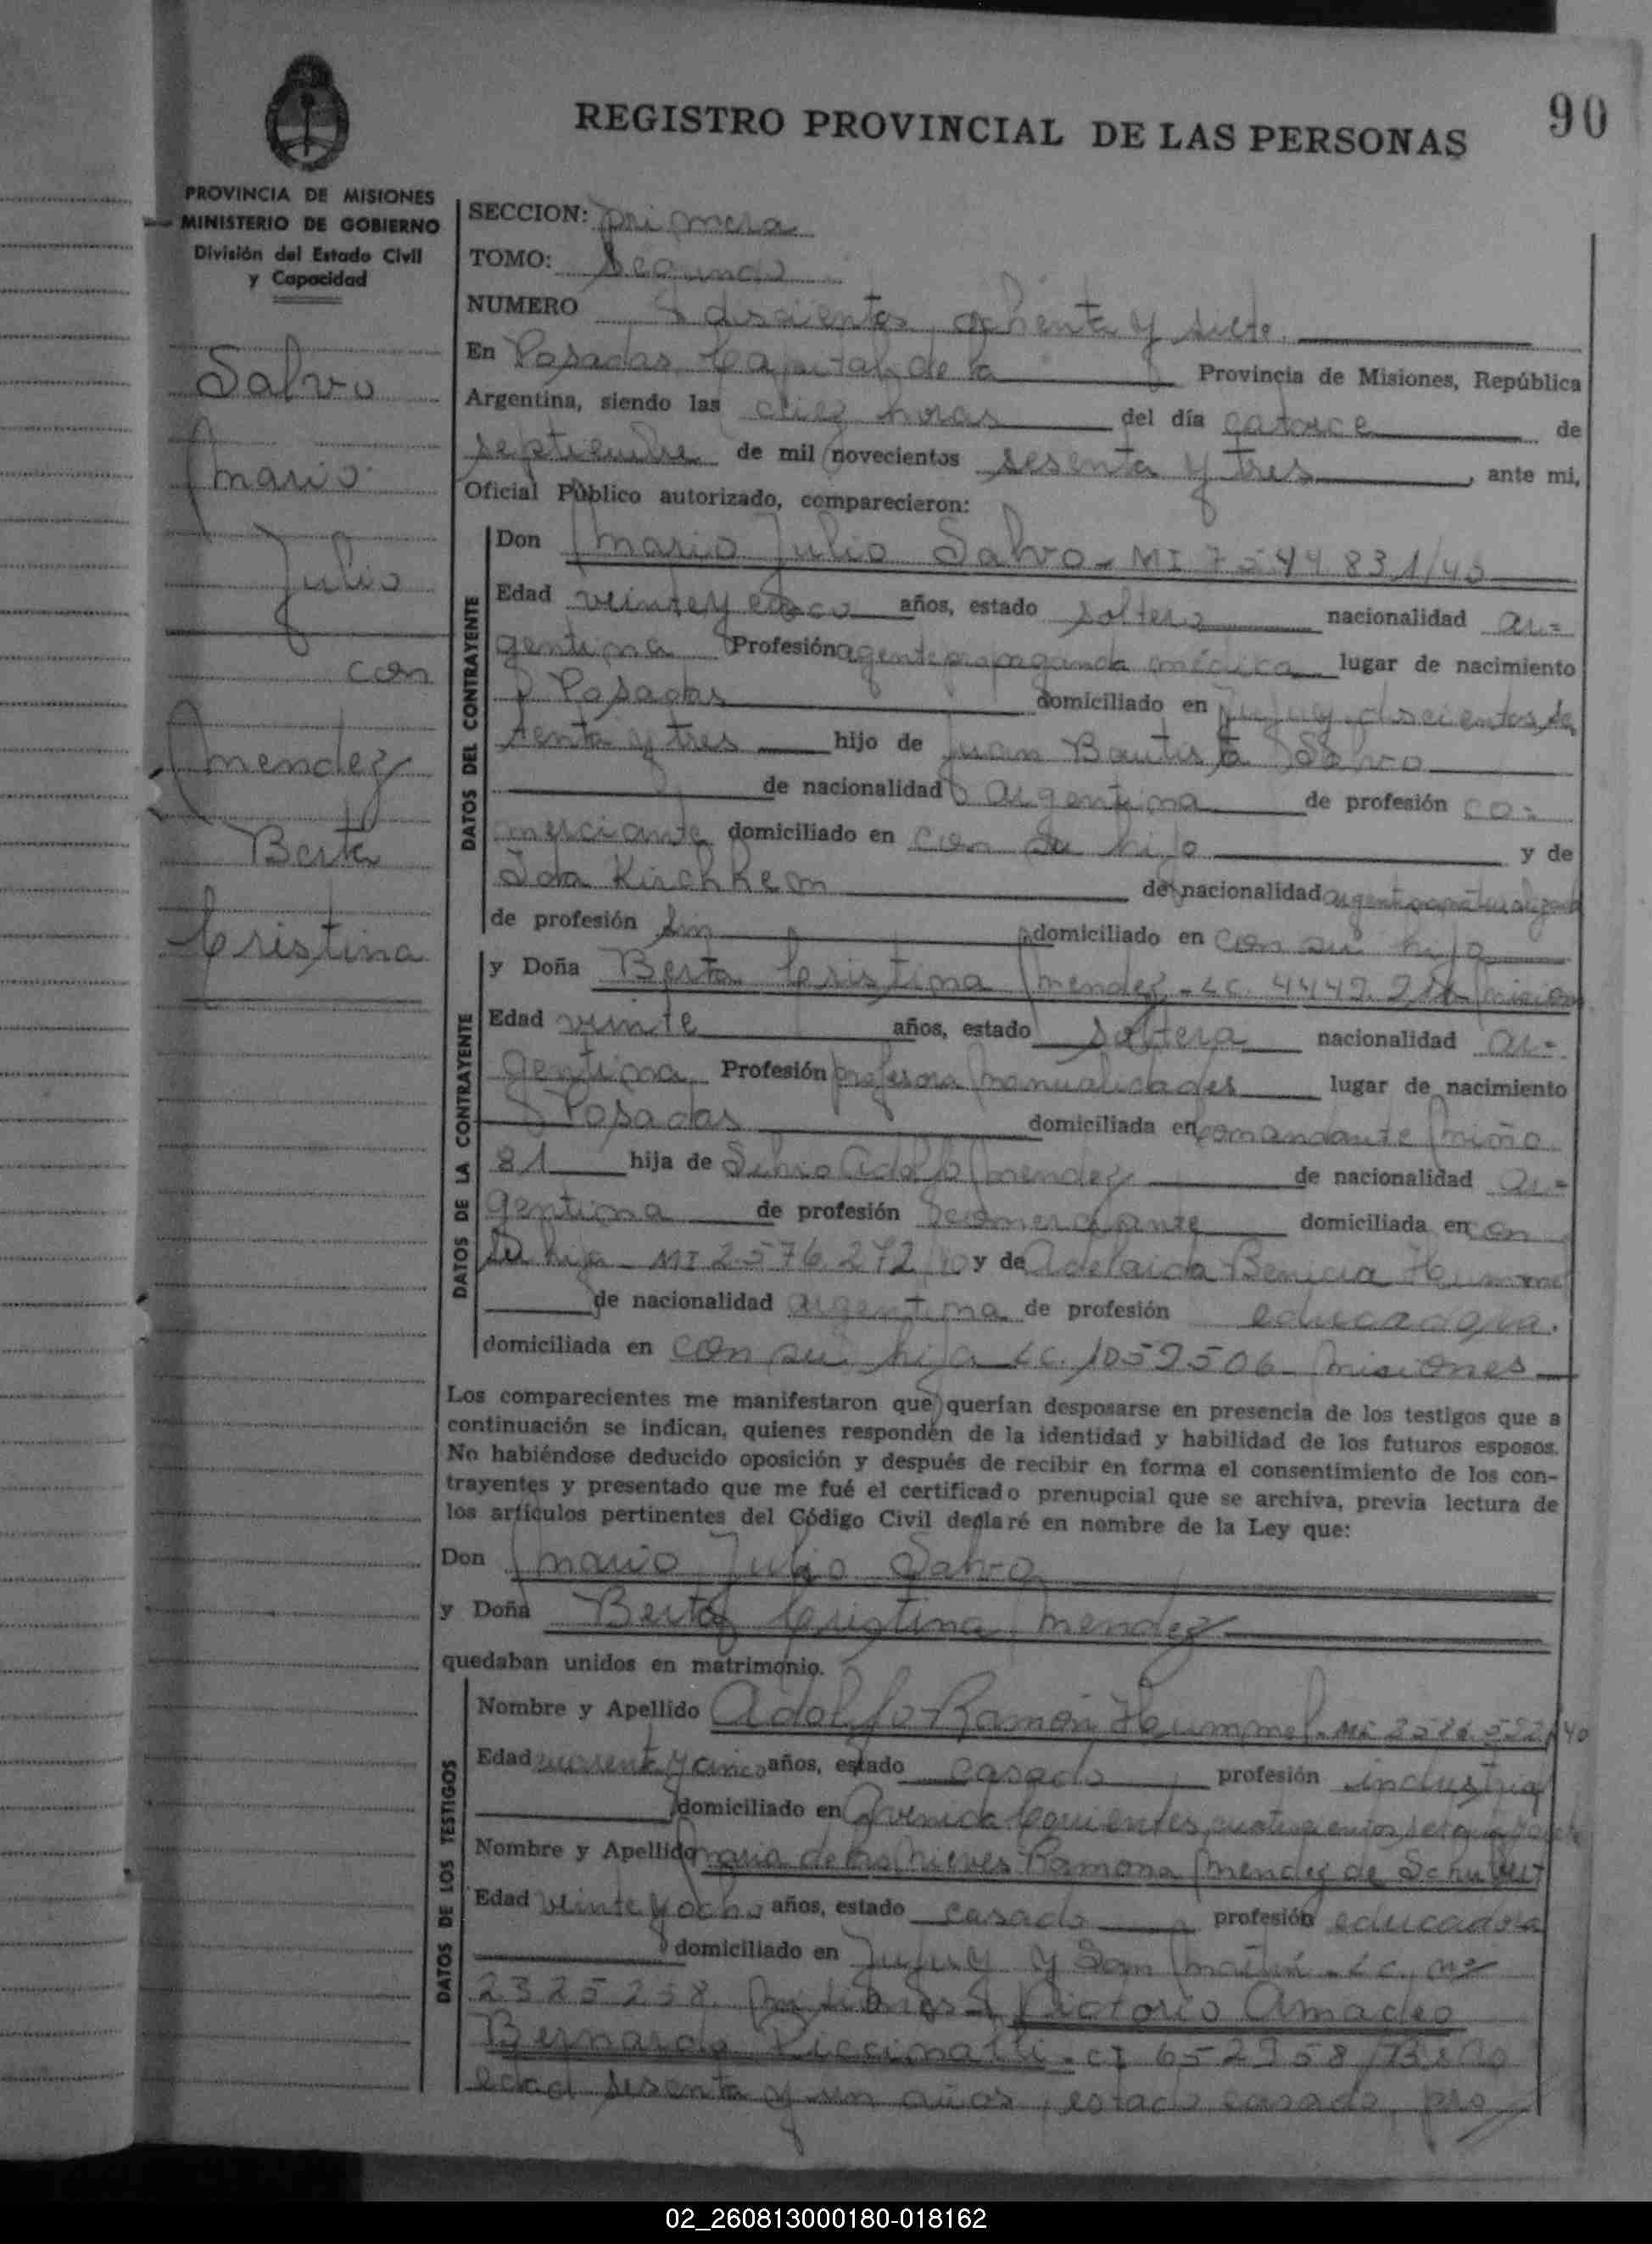 90
REGISTRO PROVINCIAL DE LAS PERSONAS
PROVINCIA DE MISIONES
MINISTERIO DE GOBIERNO
División del Estado Civil
y Capacidad
Salvo
Mario
Julio
con
Mendez
Berta
Cristina
SECCION: primera
TOMO: Segundo
NUMERO doscientos ochenta y siete
En Posadas Capital de la Provincia de Misiones, República
Argentina, siendo las diez horas del día catorce de
septiembre de mil novecientos sesenta y tres, ante mi,
Oficial Público autorizado, comparecieron:
DATOS DEL CONTRAYENTE
Don Mario Julio Salvo - MI 7544831/40
Edad veinte y años, estado soltero nacionalidad ar-
gentina Profesión agente propaganda médica lugar de nacimiento
Posadas domiciliado en Jujuy doscientos se
tenta y tres hijo de Juan Bautista Salvo
de nacionalidad argentina de profesión co-
merciante domiciliado en con su hijo y de
Ida Kirchheim de nacionalidad
de profesión sin domiciliado en con su hijo
DATOS DE LA CONTRAYENTE
y Doña Berta Cristina Mendez - LC. Misiones
Edad veinte años, estado soltera nacionalidad ar-
gentina Profesión profesora manualidades lugar de nacimiento
Posadas domiciliada en Comandante Miño
81 hija de Silvio Adolfo Mendez de nacionalidad ar-
gentina de profesión comerciante domiciliada en con
su hija - MI 2576272/40 y de Adelaida Benicia Hummel
de nacionalidad argentina de profesión educadora.
domiciliada en con su hija LC. 1059506 - Misiones
Los comparecientes me manifestaron que querían desposarse en presencia de los testigos que a
continuación se indican, quienes responden de la identidad y habilidad de los futuros esposos.
No habiéndose deducido oposición y después de recibir en forma el consentimiento de los con-
trayentes y presentado que me fué el certificado prenupcial que se archiva, previa lectura de
los artículos pertinentes del Código Civil declaré en nombre de la Ley que:
Don Mario Julio Salvo
y Doña Berta Cristina Mendez
quedaban unidos en matrimonio.
DATOS DE LOS TESTIGOS
Nombre y Apellido Adolfo Ramón Hummel - MI
Edad cuarenta y cinco años, estado casado profesión industrial
domiciliado en Avenida Corrientes cuatrocientos
Nombre y Apellido Maria de las Nieves Ramona Mendez de Schubert
Edad veinte y ocho años, estado casado profesión educadora
domiciliado en Jujuy y San Martín - LC. nº
2325258 Misiones - Victorio Amadeo
Bernardo Piccinatti - CI 652958/BsAs
edad sesenta y un años, estado casado, pro
02_260813000180-018162